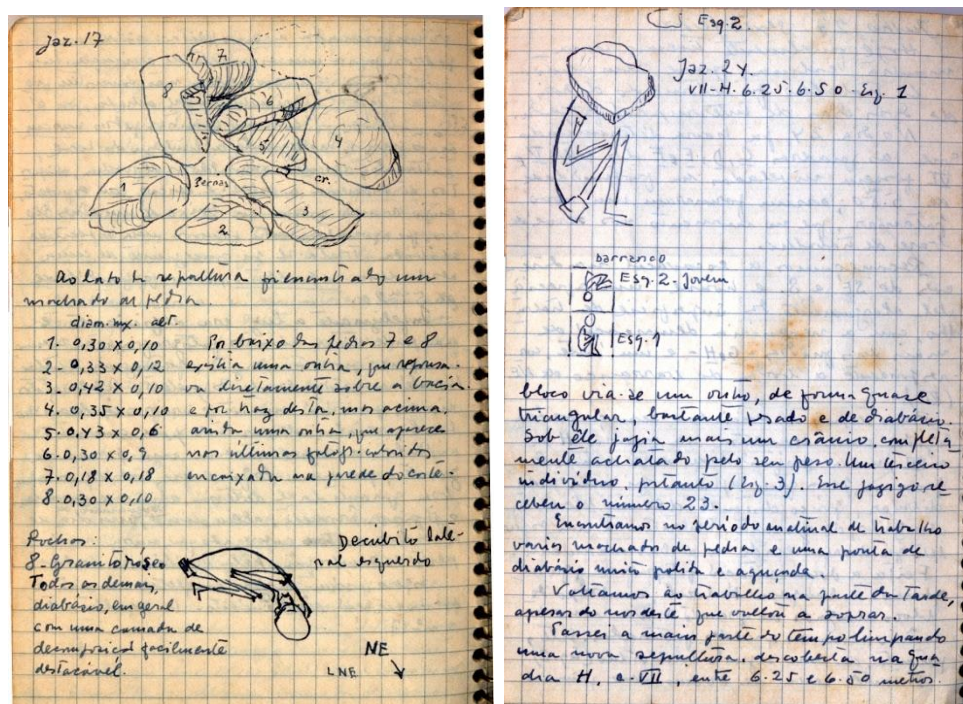 Jaz. 17
7
8
6
5
4
1
Pernas
cr.
3
2
Ao lado da sepultura foi encontrado um
machado de pedra.
diam. mx. alt.
1 - 0,30 x 0,10 Por baixo das pedras 7 e 8
2 - 0,33 x 0,12 existia uma outra, que repousa-
3 - 0,42 x 0,10 va diretamente sobre a bacia
4. 0,35 x 0,10 e por traz desta, mas acima,
5 - 0,43 x 0,6 ainda uma outra, que aparece
6 - 0,30 x 0,9 nas últimas fotogr. coloridas
7. 0,18 x 0,18 encaixada na parede do corte.
8. 0,30 x 0,10
Rochas:
8 - Granito róseo
Todos as demais,
diabásio, em geral
com uma camada de
decomposição facilmente
destacável.
Decúbito late-
ral esquerdo
NE
LNE
Esq. 2
Jaz. 24.
VII - H. 6.25 - 6.50 - Esq. 1
barranco
Esq. 2 - Jovem
Esq. 1
bloco via-se um outro, de forma quase
triangular, bastante pesado e de diabásio.
Sob ele jazia mais um crânio, completa-
mente achatado pelo seu peso. Um terceiro
indivíduo, portanto (Esq. 3). Esse jazigo re-
cebeu o número 23.
Encontramos no período matinal de trabalho
varios machados de pedra e uma ponta de
diabásio muito polida e aguçada.
Voltamos ao trabalho na parte da tarde,
apesar do nordeste que voltou a soprar.
Passei a maior parte do tempo limpando
uma nova sepultura, descoberta na qua
dra H, e VII, entre 6.25 e 6.50 metros.